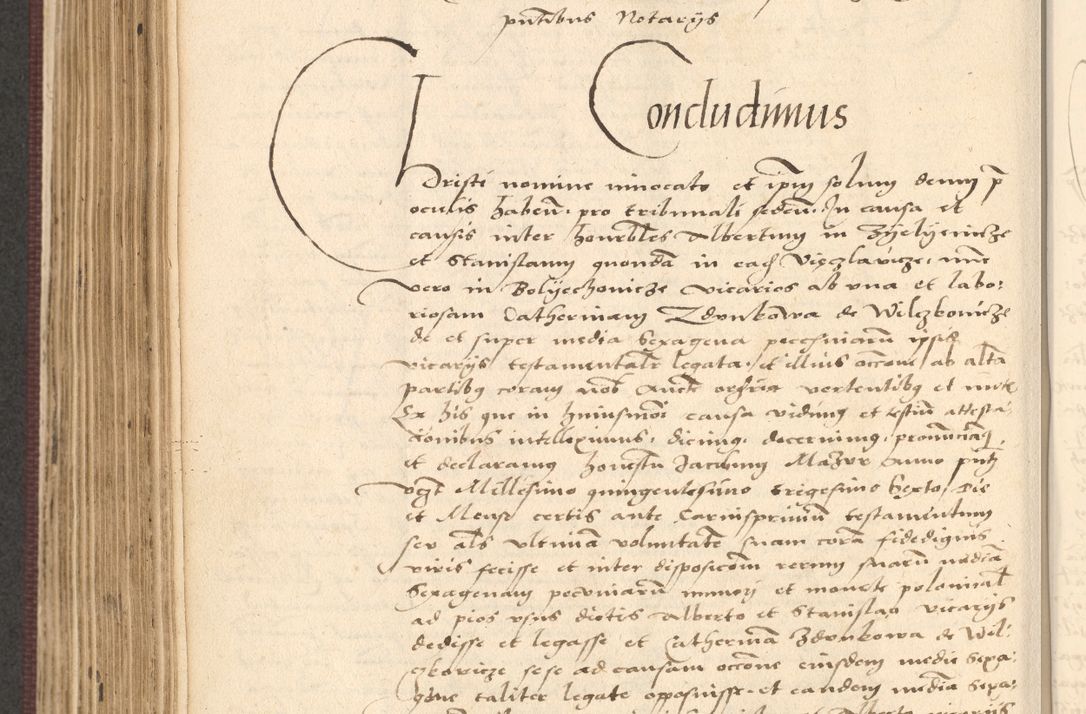 pntibus Notarijs
Concludimus
Christi nomine invocato et ipm solum deum p̄
oculis habeñ. pro tribunali sedeñ. In causa et
causis inter honrbles Albertum in Zyelyenicze
et Stanislaum quondā in eadē Vięczlavicze, nunc
vero in Bolyechovicze vicarios ab una et labo:
riosam Catherinam Zdunkowa de Wilczkovicze
de et super media sexagena pecuniarū ipsis
vicarijs testamentalr legata, et illius occōne ab altā
partibq coram nob
Ex his que in huiusmōi causa vidimq et testiū attesta:
tionibus intelleximus, dicimq, decernimq, pronunciamq,
et declaramq honestū Jacobum Mazur Anno pntj
vegt Millesimo quingentesimo trigesimo Sexto, Die
et Mense certis ante Carnisprivium testamentum
seu als ultimā voluntatē suam corā fidedignis
viris fecisse et inter disposicōm rerum suarū mediā
Sexagenam pecuniarū numeri et monete polonicał
ad pios usus dictis Alberto et Stanislao vicarijs
dedisse et legasse et Catherinā Zdunkowa de Wil:
czkovicze sese ad causam occōne eiusdem medie Sexa:
gene taliter legate opposuisse, et eandem mediā Sexa:
Alberto vicarijs